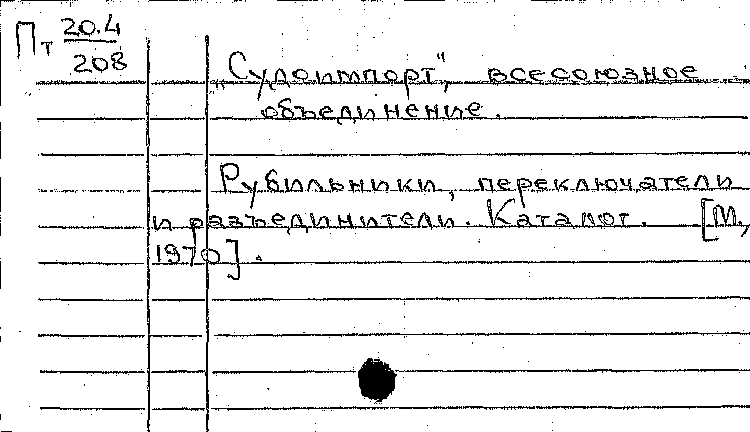 Пт 20.4
208
„Судоимпорт", всесоюзное
объединение.
Рубильники, переключатели
и разъединители. Каталог. [М.,
1970].